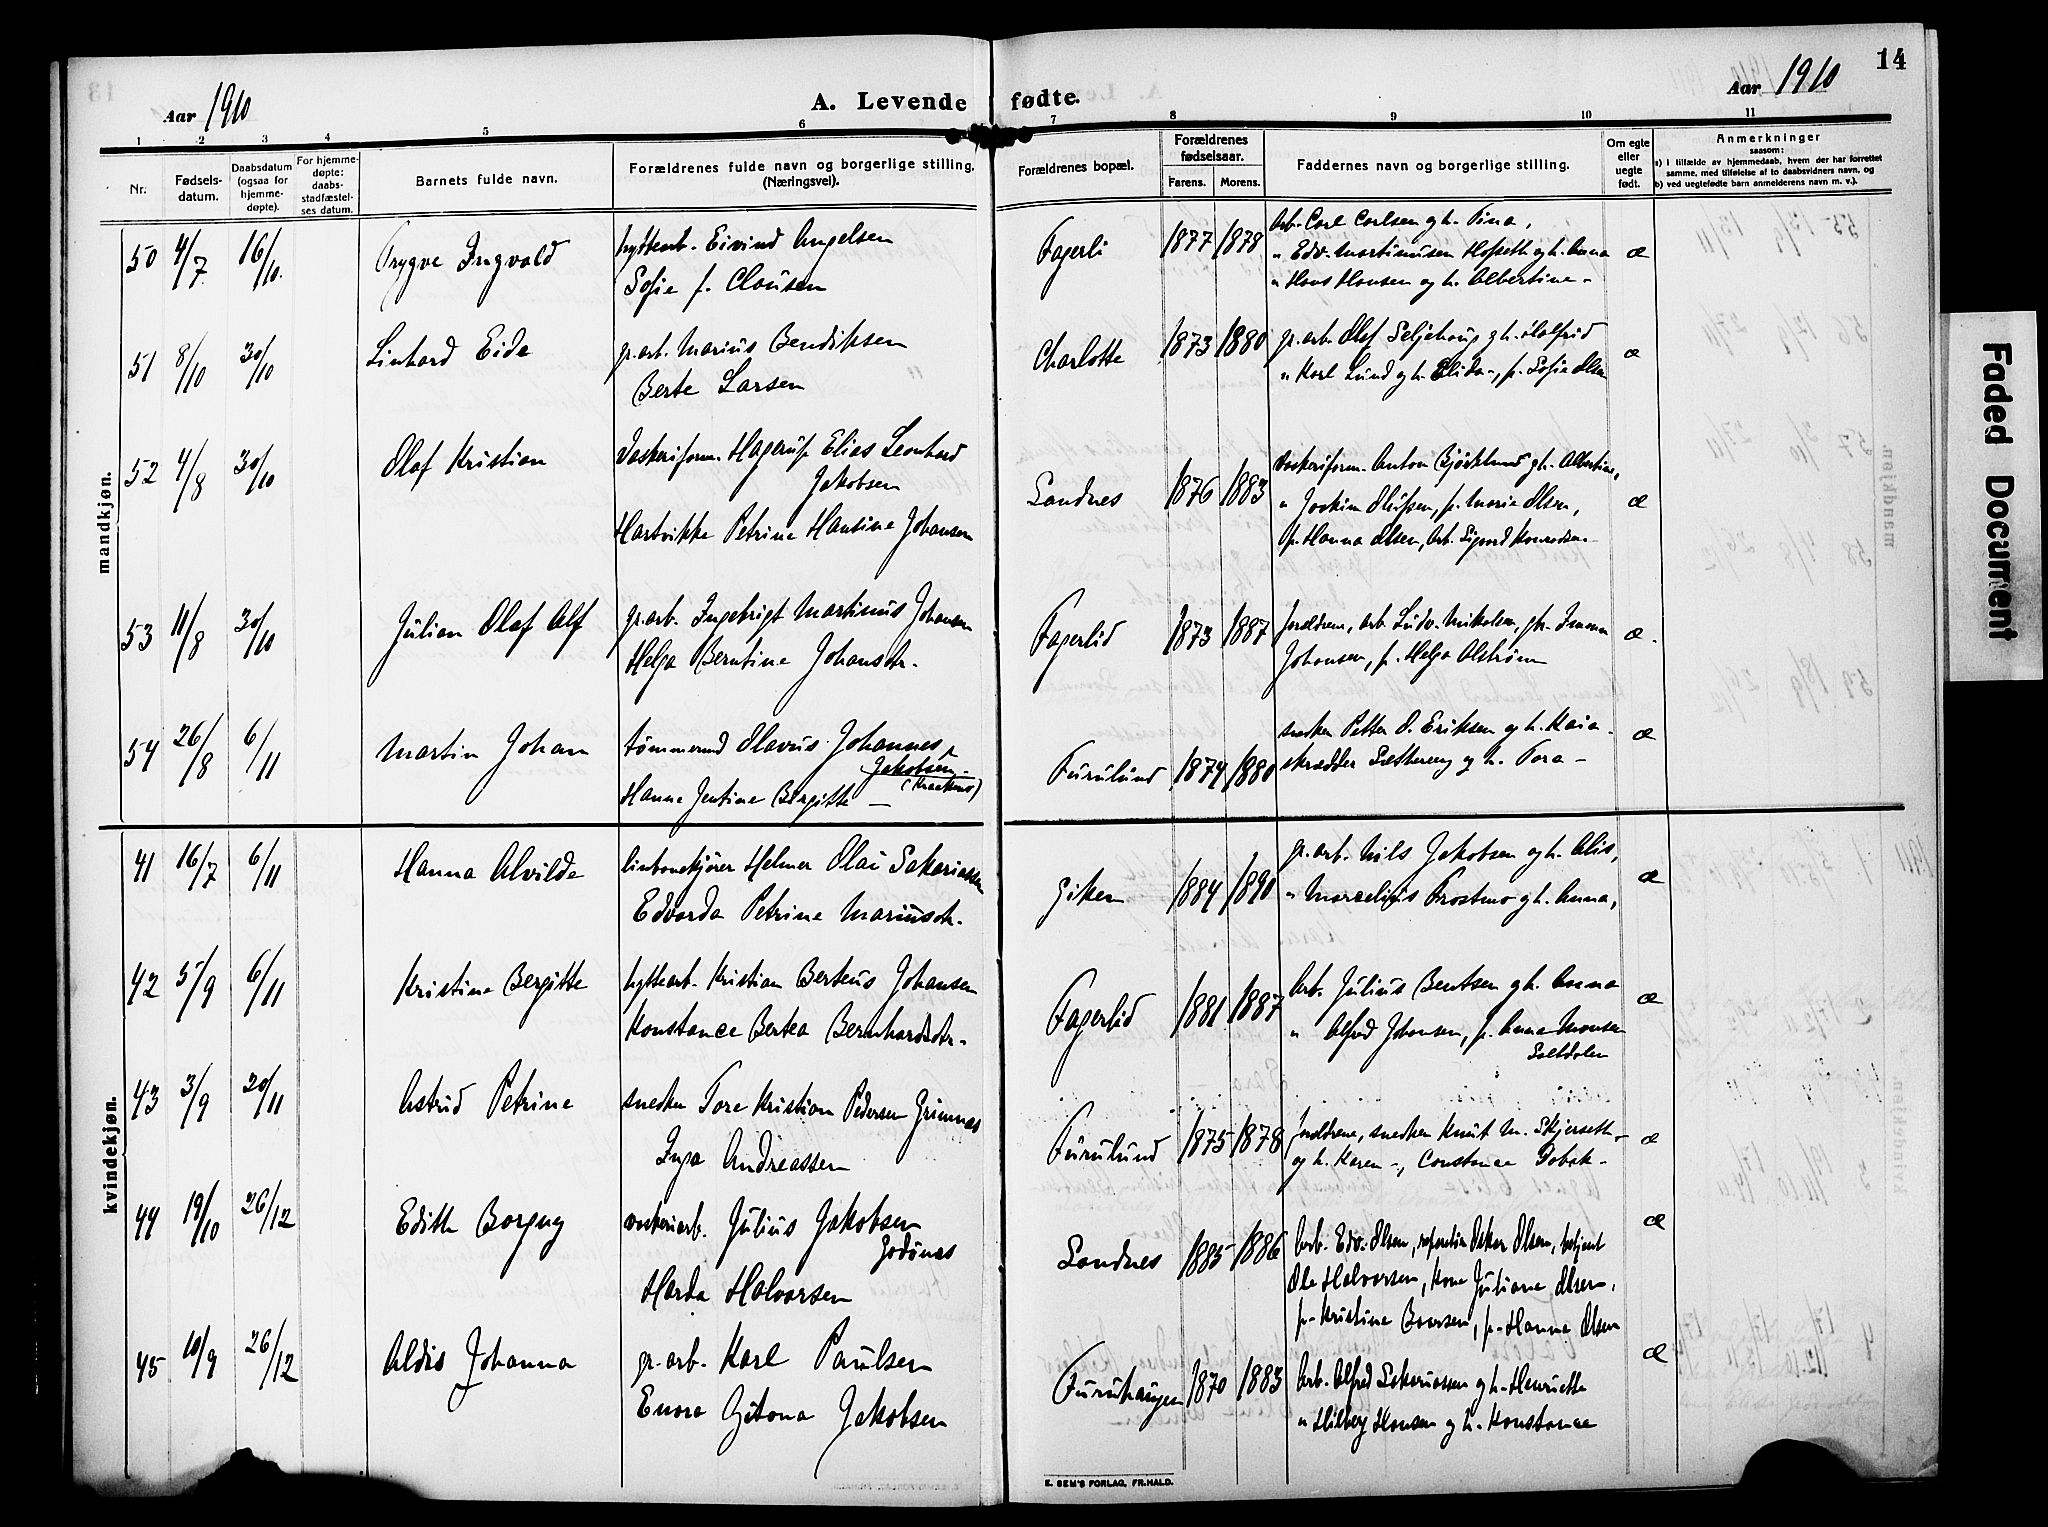 14
Aar 1910
A. Levende fødte.
Aar 1910
1 2 3 4 5 6 7 8 9 10 11
Nr.
Fødsels-
datum.
Daabsdatum
(ogsaa for
hjemme-
døpte).
For hjemme-
døpte:
daabs-
stadfæstel-
ses datum.
Barnets fulde navn.
Forældrenes fulde navn og borgerlige stilling.
(Næringsvei).
Forældrenes bopæl.
Forældrenes
fødselsaar.
Farens. Morens.
Faddernes navn og borgerlige stilling.
Om egte
eller
uegte
født.
Anmerkninger
saasom:
a) i tilfælde av hjemmedaab, hvem der har forrettet
samme, med tilføielse af to daabsvidners navn, og
b) ved uegtefødte barn anmelderens navn m. v.).
mandkjøn.
50 4/7 16/10 Trygve Ingvald
hyttearb. Eivind Angelsen
Sofie f. Clausen
Fagerli 1877 1878
Arb. Carl Carlsen og h. Tina,
" Edv. Martinusen Hofseth og h. Anna
" Hans Hansen og h. Albertine -
æ
51 8/10 30/10 Linhard Eide
gr.arb. Marius Bendiksen
Berte Larsen
Charlotte 1873 1880
gr.arb. Olaf Seljehaug og h. Halfrid
" Karl Lund og h. Elida -, p. Sofie Olsen
æ
52 4/8 30/10 Olaf Kristian
Vaskeriform. Hagerup Elias Leonhard
Jakobsen
Hartvikke Petrine Hansine Johansen
Sandnes 1876 1883
Vaskeriform. Anton Bjørklund og h. Albertine,
" Joakim Olufsen, p. Marie Olsen,
p. Hanna Olsen, Arb. Sigurd Konradsen -
æ
53 11/8 30/10 Julian Olaf Alf
gr.arb. Ingebrigt Martinus Johansen
Helga Berntine Johansdtr.
Fagerlid 1873 1887
Forældrene, arb. Ludv. Mikalsen, Emma
Johansen, p. Helga Alstrøm
æ
54 26/8 6/11 Martin Johan
tømmermd Olavus Johannes
Jakobsen
Hanne Jentine Bergitte -
Furulund 1874 1880
snedker Petter O. Eriksen og h. Kaia -
skrædder Sættereng og h. Tora -
æ
kvindekjøn.
41 16/7 6/11 Hanna Alvilde
linbanekjører Helmer Olai Sakariassen
Edvarda Petrine Mariusdtr.
Giken 1884 1890
gr.arb. Nils Jakobsen og h. Alis,
" Marcelius Trostmo og h. Anna,
æ
42 5/9 6/11 Kristine Bergitte
hyttearb. Kristian Berteus Johansen
Konstance Bertea Bernhardsdtr.
Fagerlid 1881 1887
Arb. Julius Bentsen og h. Anna
" Alfred Johansen, p. Anna Monsen
Saltdalen
æ
43 3/9 20/11 Astrid Petrine
snedker Tore Kristian Pedersen Grimnes
Inga Andreassen
Furulund 1875 1878
Forældrene, snedker Knut M. Skjerseth
og h. Karen -, Constance Dobak -
æ
44 19/10 26/12 Edith Borgny
vaskeriarb. Julius Jakobsen
Godønes
Harda Halvorsen
Sandnes 1885 1886
Arb. Edv. Olsen, reparatør Oskar Olsen, betjent
Ole Halvorsen, Kone Juliane Olsen,
p. Kristine Baarsen, p. Hanna Olsen
æ
45 10/9 26/12 Aldis Johanna
gr.arb. Karl Paulsen
Enora Gitona Jakobsen
Furuhaugen 1870 1883
Arb. Alfred Sakariassen og h. Henriette
" Hilberg Hansen og h. Konstance
æ
E. SEM'S FORLAG, FR.HALD.
Faded Document